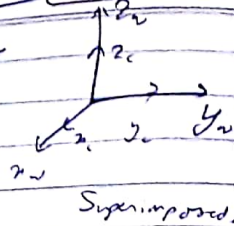 Z_w
Z_c
Y_w
x_c
y_c
x_w
Superimposed.